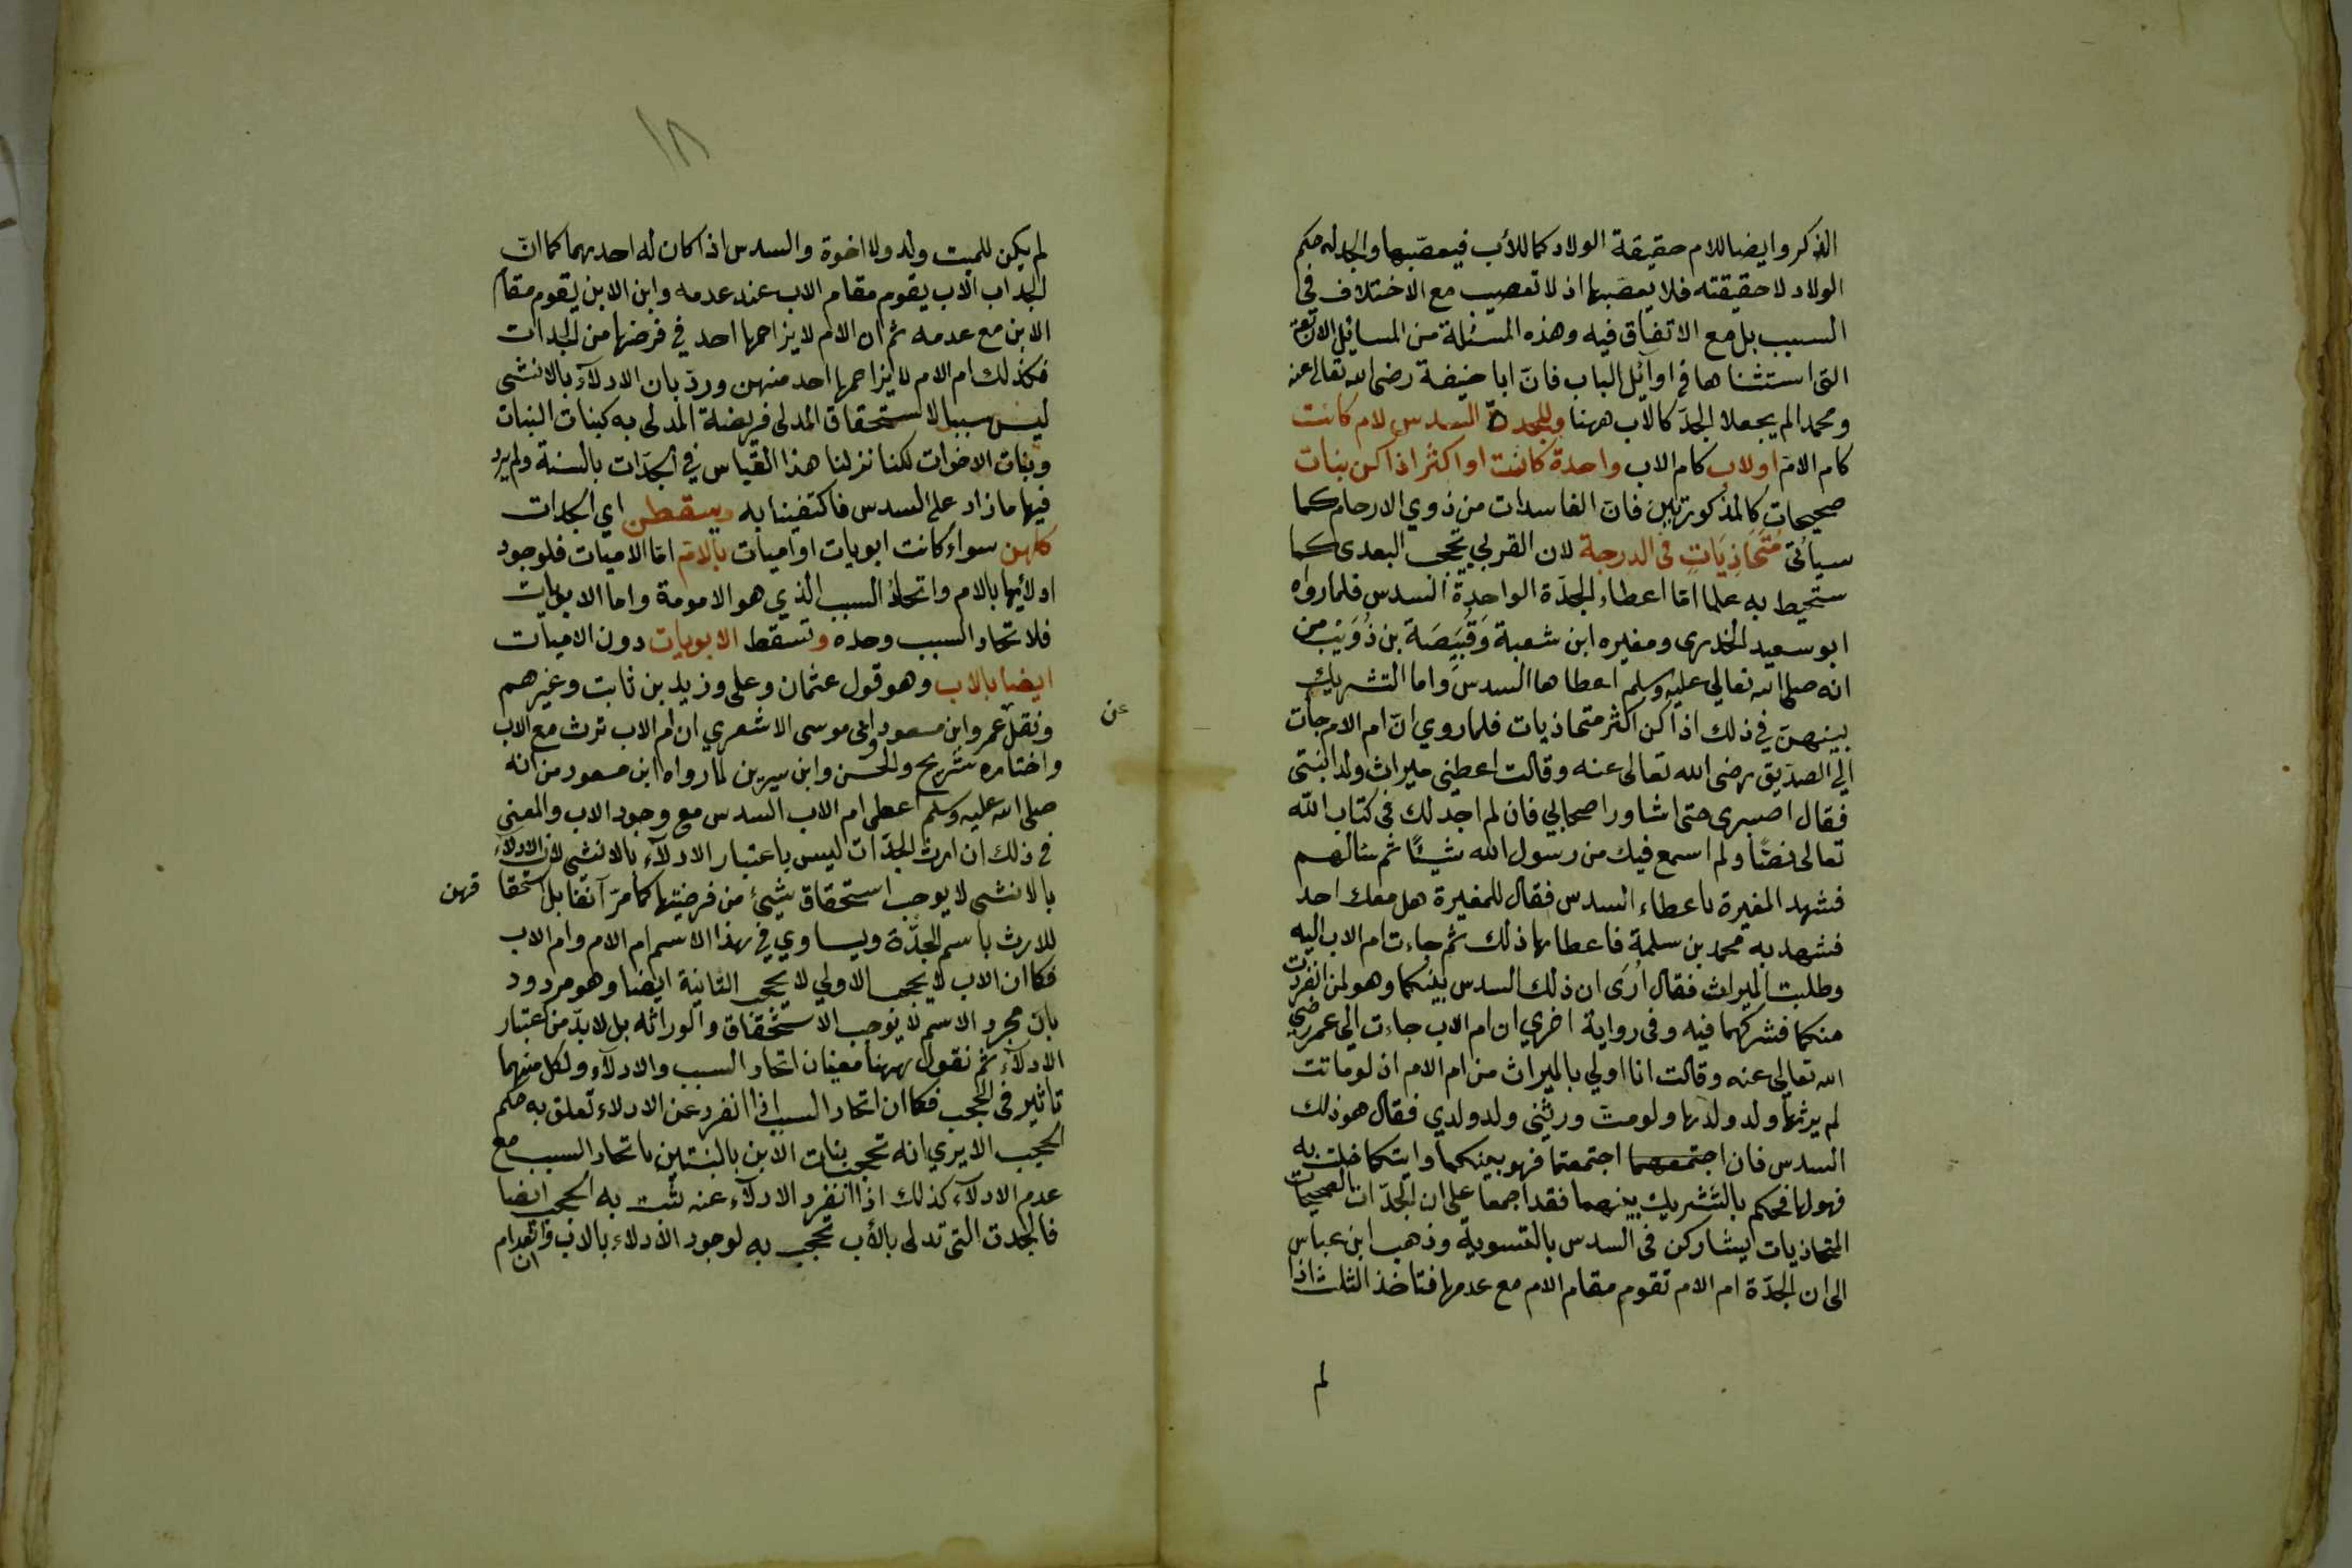 الذكر وايضا للام حقيقة الولاد كما للأب فيعصّبها والجد له حكم
الولاد لا حقيقته فلا يعصّبها اذ لا تعصيب مع الاختلاف في
السبب بل مع الاتفاق فيه وهذه المسئلة من المسائل الاربعة
التى استثناها في اوآئل الباب فانّ ابا حنيفة رضى الله تعالى عنه
ومحمد الم يجعلا الجدّ كالاب ههنا وللجدة السدس لام كانت
كام الامّ اولاب كام الاب واحدة كانت او اكثر اذا كن بنات
صحيحات كالمذكورتين فانّ الفاسدات من ذوي الارحام كما
سيأتى مُتَحَاذِيَاتٍ فى الدرجة لان القربي تحجب البعدى كما
ستحيط به علما امّا اعطاء الجدّة الواحدة السدس فلما رواه
ابو سعيد الخدرى ومغيره ابن شعبة وَقُبَيَصَة بن ذُوَيْب من
انه صلى الله تعالى عليه وسلم اعطاها السدس واما التشريك
بينهنّ في ذلك اذا كن اكثر متحاذيات فلما روي انّ ام الام جأت
الي الصدّيق رضى الله تعالى عنه وقالت اعطينى ميراث ولد ابنتى
فقال اصبرى حتى اشاور اصحابي فان لم اجد لك فى كتاب الله
تعالى نصًّا ولم اسمع فيك من رسول الله شيئًا ثم سألهم
فشهد المغيرة باعطاء السدس فقال للمغيرة هل معك احد
فشهد به محمد بن سلمة فاعطاها ذلك ثم جاءت ام الاب اليه
وطلبت الميراث فقال اُرَى ان ذلك السدس بينكما وهو لمن انفردت
منكما فشركهما فيه وفى رواية اخري ان ام الاب جاءت الي عمر رضى
الله تعالى عنه وقالت انا اولي بالميراث من ام الام اذ لو ماتت
لم يرثها ولد ولدها ولو متّ ورثنى ولد ولدي فقال هو ذلك
السدس فان اجتمعهما اجتمعتما فهو بينكما وايتكما خلت به
فهو لها فحكم بالتشريك بينهما فقد اجمعا على ان الجدّات الصحيحات
المتحاذيات يتشاركن فى السدس بالتسوية وذهب ابن عباس
الى ان الجدّة ام الام تقوم مقام الام مع عدمها فتاخذ الثلث اذا
لم
١٨
لم يكن للميت ولد ولا اخوة والسدس اذا كان له احدهما كما انّ
الجد اب الاب يقوم مقام الاب عند عدمه وابن الابن يقوم مقام
الابن مع عدمه ثم ان الام لا يزاحمها احد في فرضها من الجدات
فكذلك ام الام لا يزاحمها احد منهن وردّ بان الادلآء بالانثى
ليس سببا لاستحقاق المدلى فريضة المدلى به كبنات البنات
وبنات الاخوات لكنا نزلنا هذا القياس في الجدّات بالسنة ولم يرد
فيها ما زاد على السدس فاكتفينا به ويسقطن اي الجدات
كلهن سواء كانت ابويات او اميات بالامّ امّا الاميات فلوجود
ادلائها بالام واتحاد السبب الذي هو الامومة واما الابويات
فلاتحاد السبب وحده وتسقط الابويات دون الاميات
ايضا بالاب وهو قول عثمان وعلى وزيد بن ثابت وغيرهم
ونقل عمر وابن مسعود وابى موسى الاشعري ان ام الاب ترث مع الاب
عن
واختاره شريح والحسن وابن سيرين لما رواه ابن مسعود من انه
صلى الله عليه وسلم اعطى ام الاب السدس مع وجود الاب والمعنى
في ذلك ان ارث الجدّات ليس باعتبار الادلآء بالانثى لان الادلآء
بالانثى لا يوجب استحقاق شيئ من فرضيتها كما مرّ آنفا بل استحقا قهن
للارث باسم الجدّة ويساوي في هذا الاسم ام الام وام الاب
فكما ان الاب لا يحجب الاولي لا يحجب الثانية ايضا وهو مردود
بان مجرد الاسم لا يوجب الاستحقاق والوراثه بل لا بدّ من اعتبار
الادلآء ثم نقول ههنا معنيان اتحاد السبب والادلآء ولكل منهما
تاثير فى الحجب فكما ان اتحاد السبب اذا انفرد عن الادلاء تعلق به حكم
الحجب الا يري انه تحجب بنات الابن بالبنتين باتحاد السبب مع
عدم الادلآء كذلك اذا انفرد الادلآء عنه ثبت به الحجب ايضا
فالجدة التى تدلى بالأب تحجب به لوجود الادلاء بالاب وانعدام
ان